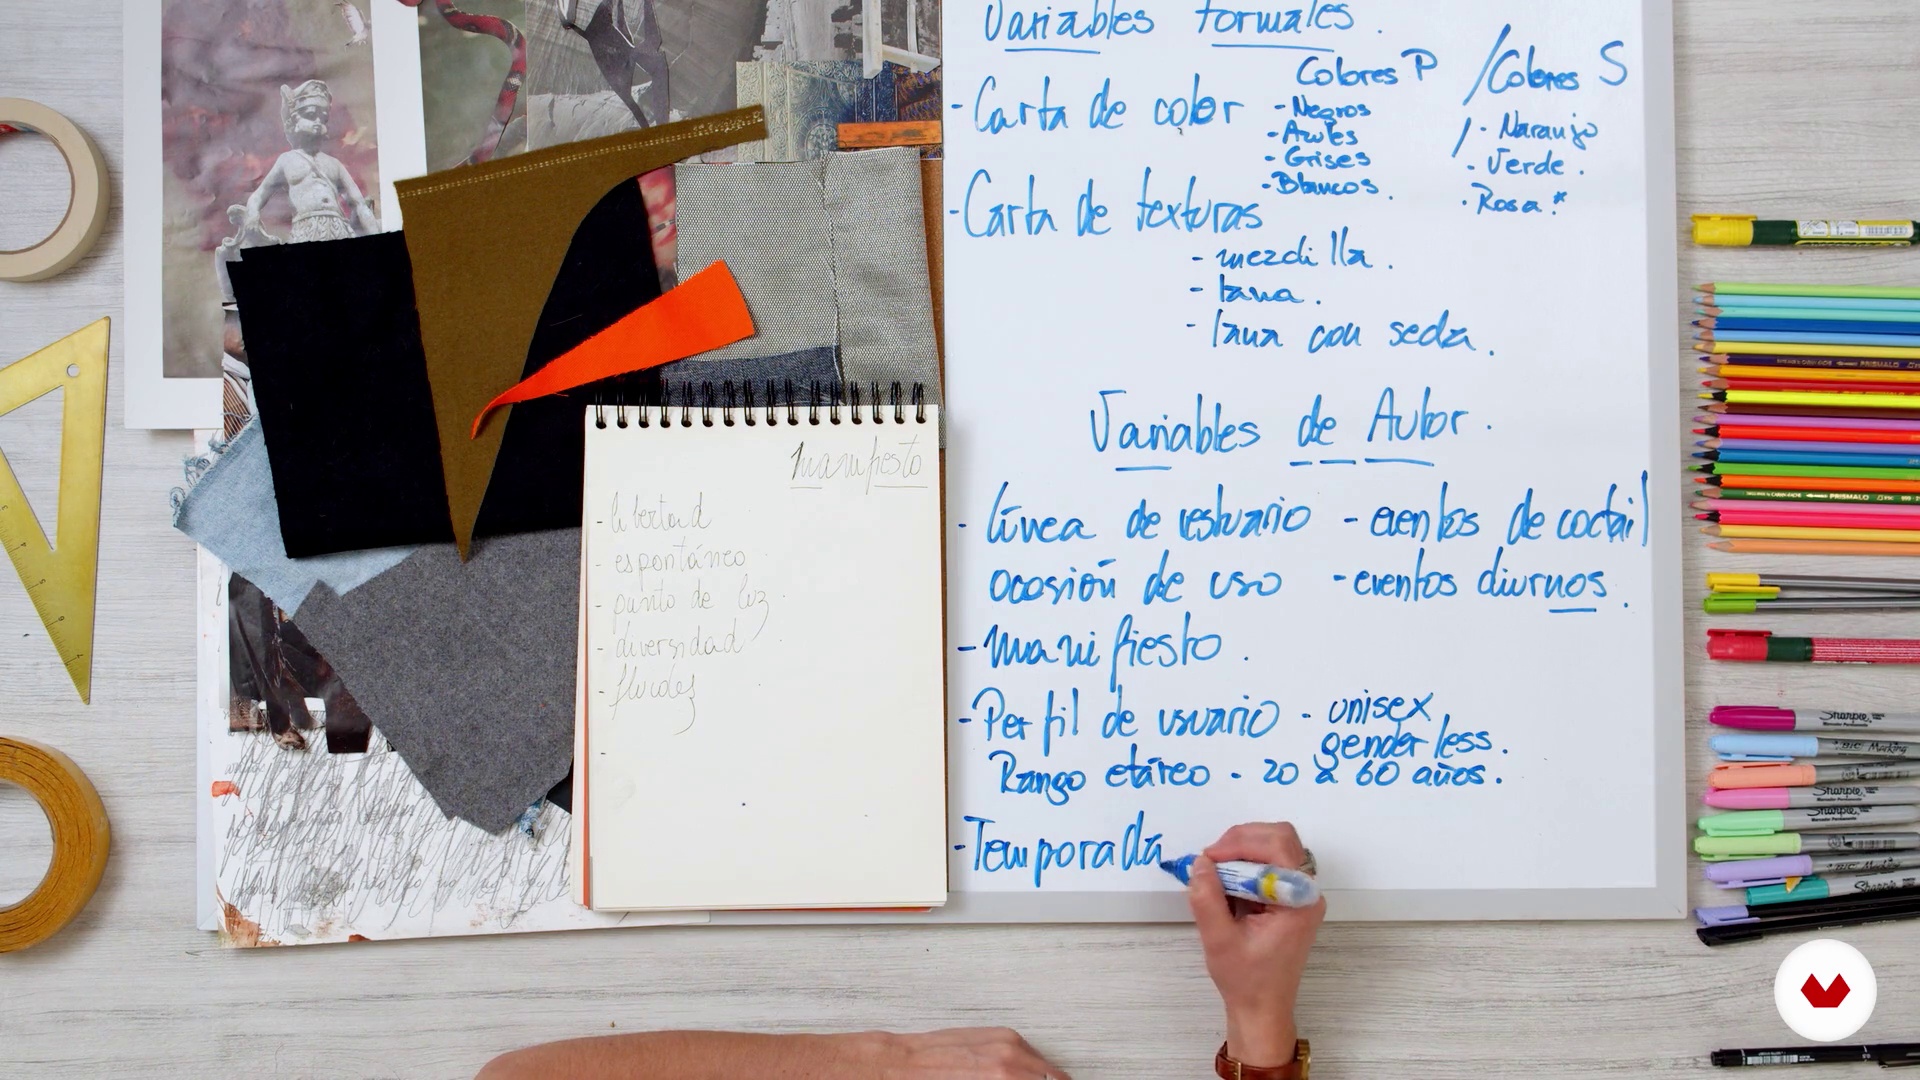 Variables formales.
Colores P / Colores S
- Carta de color
- Negros
- Azules
- Grises
- Blancos.
/ · Naranjo
· Verde.
· Rosa.*
- Carta de texturas
- mezclilla.
- lana.
- lana con seda.
Variables de Autor.
- línea de vestuario - eventos de coctail
ocasión de uso - eventos diurnos.
- manifiesto.
- Perfil de usuario - unisex
genderless.
Rango etáreo - 20 a 60 años.
- Temporada
manifiesto
- libertad
- espontáneo
- punto de luz
- diversidad
- fluidez
-
PRISMALO
PRISMALO
Sharpie
BIC Marking
Sharpie
Sharpie
BIC Marking
Sharpie